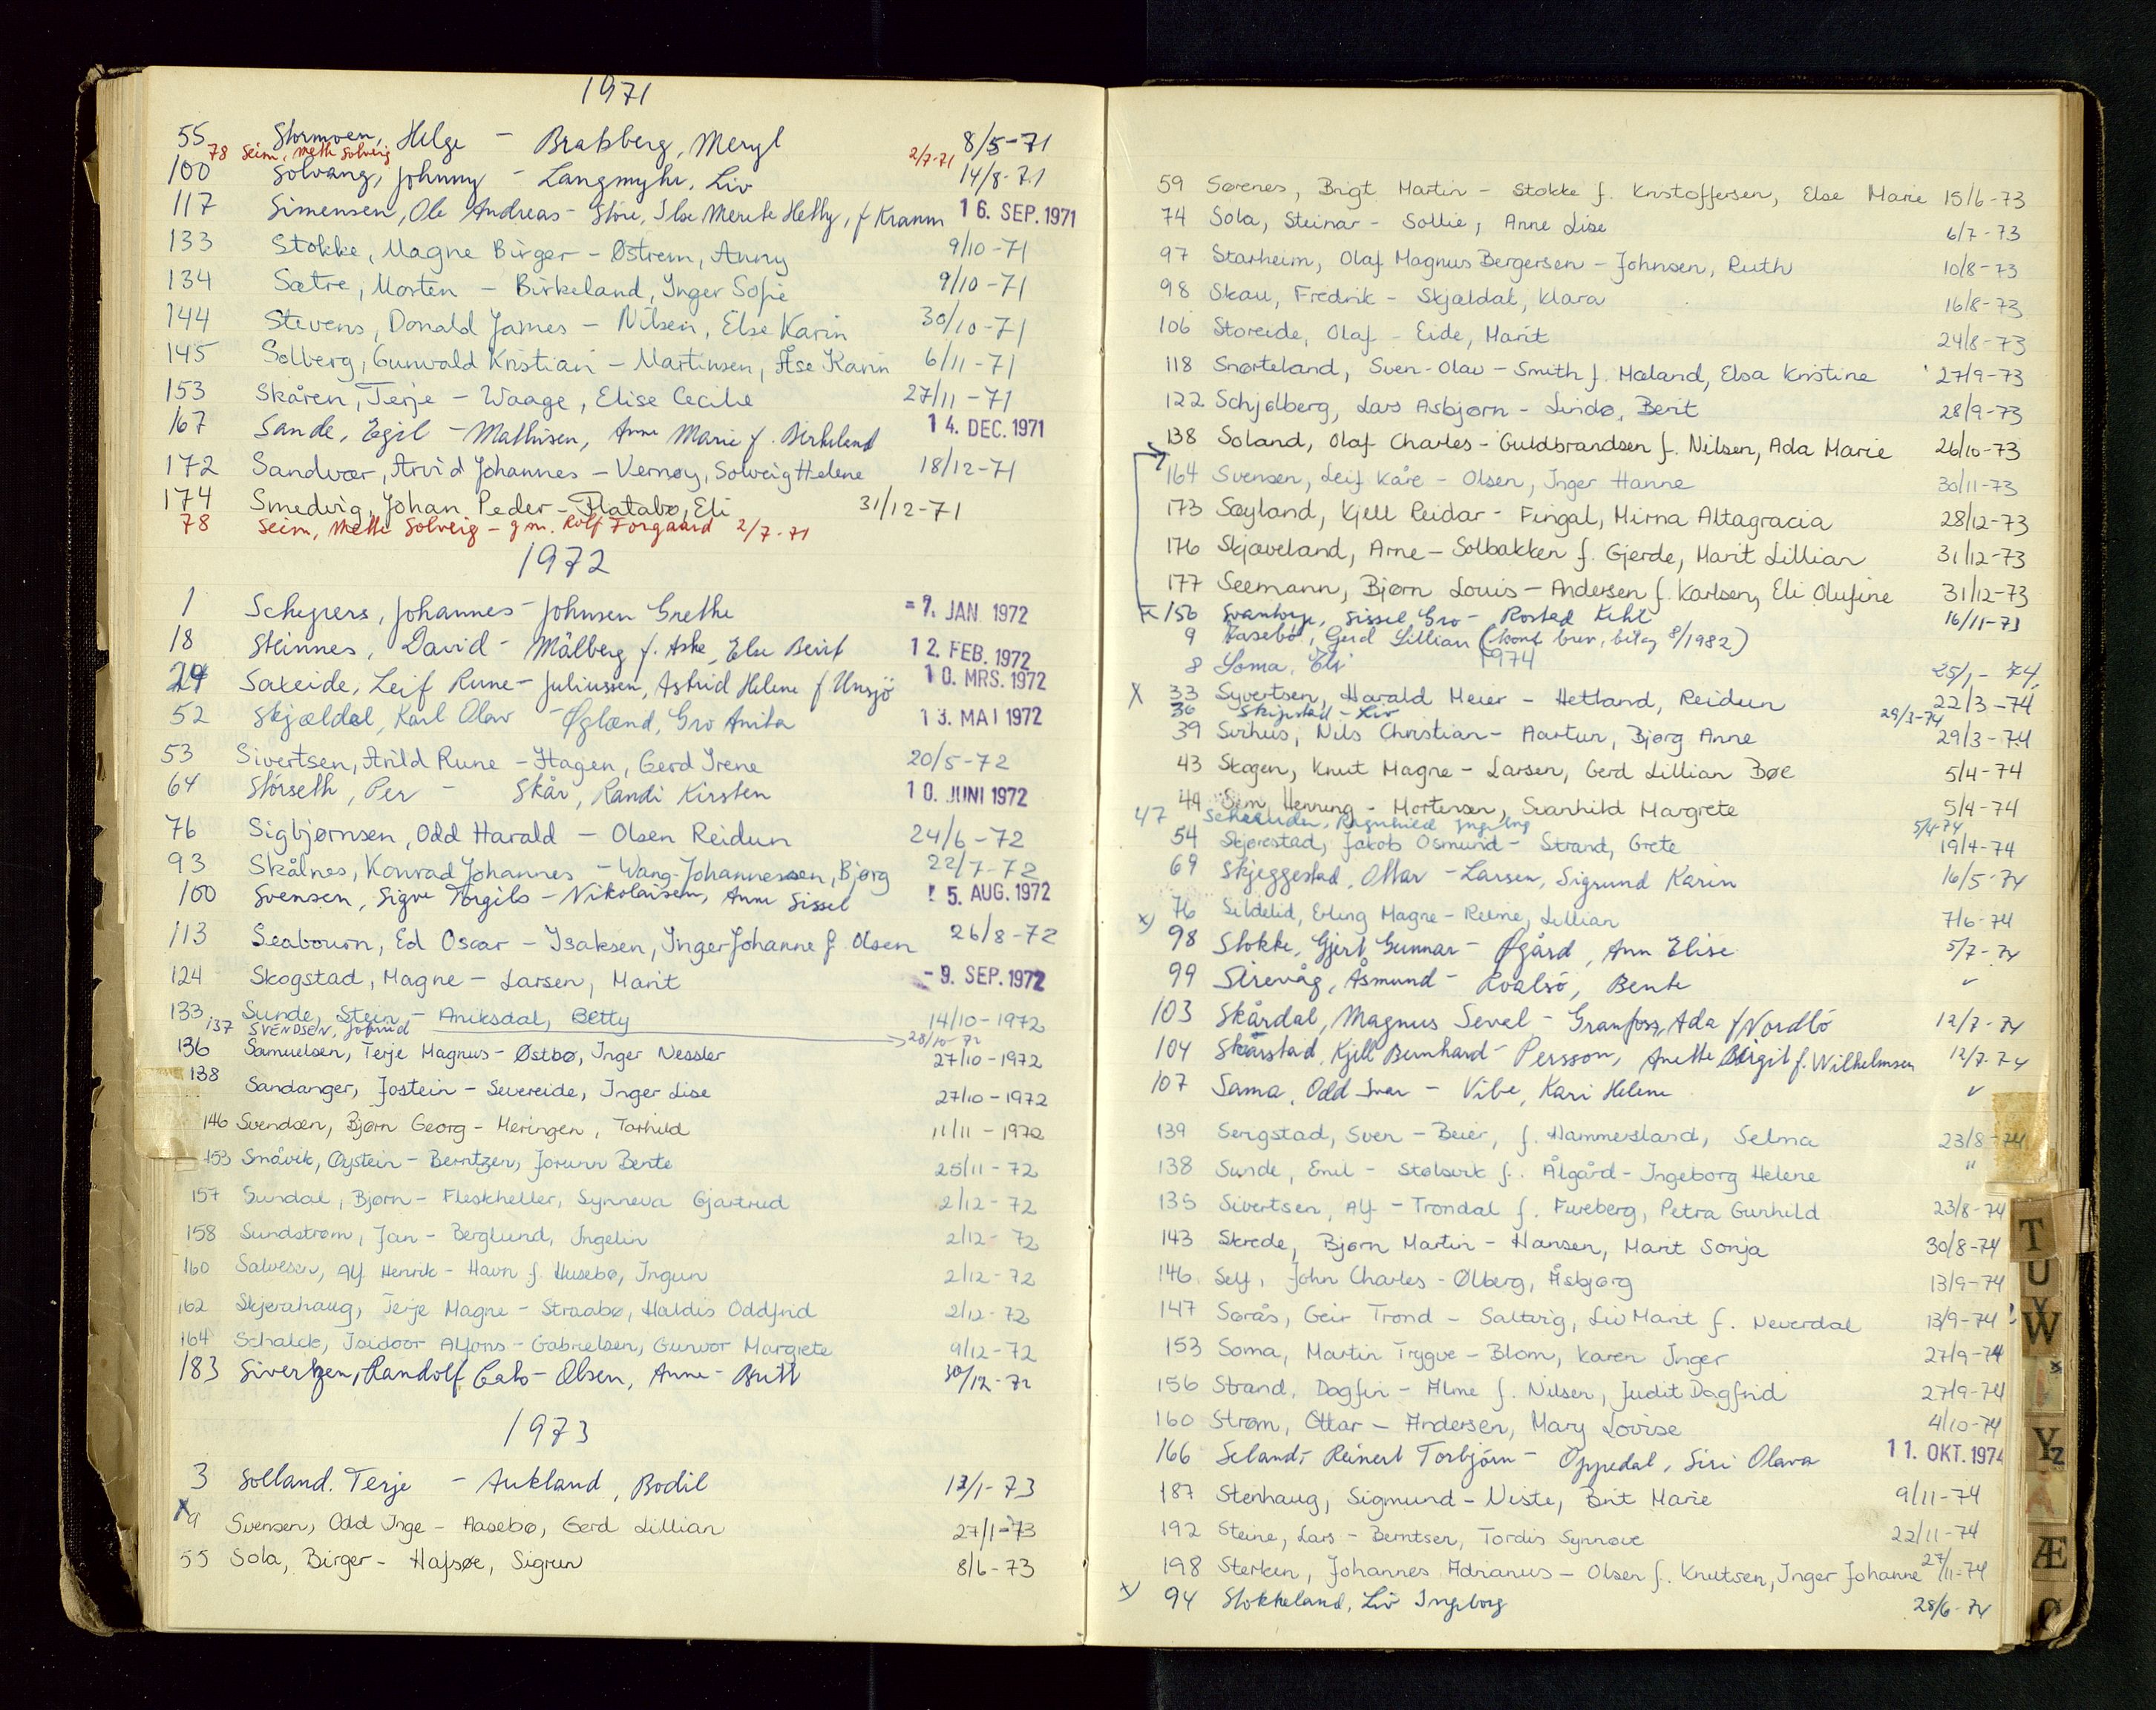 1971
55 Stormoen, Helge - Braksberg, Meryl 8/5-71
78 Seim, Mette Solveig 2/7-71
100 Solvang, Johnny - Langmyhr, Liv 14/8-71
117 Simensen, Ole Andreas - Støre, Ilse Merete Hetty, f Kramm 16. SEP. 1971
133 Stokke, Magne Birger - Østrem, Anny 9/10-71
134 Sætre, Morten - Birkeland, Inger Sofie 9/10-71
144 Stevens, Donald James - Nilsen, Else Karin 30/10-71
145 Solberg, Gunvald Kristian - Martinsen, Åse Karin 6/11-71
153 Skåren, Terje - Waage, Elise Cecilie 27/11-71
167 Sande, Egil - Mathisen, Anne Marie f. Birkeland 14. DEC. 1971
172 Sandvær, Arvid Johannes - Vernøy, Solveig Helene 18/12-71
174 Smedvig, Johan Peder - Flatabø, Eli 31/12-71
78 Seim, Mette Solveig - g.m. Rolf Forgaard 2/7-71
1972
1 Schepers, Johannes - Johnsen Grethe =7. JAN. 1972
18 Steinnes, David - Målberg f. Aske, Else Berit 12. FEB. 1972
24 Saxeide, Leif Rune - Juliussen, Astrid Helene f Unsjö 10. MRS. 1972
52 Skjældal, Karl Olav - Øglænd, Gro Anita 13. MAI 1972
53 Sivertsen, Arild Rune - Hagen, Gerd Irene 20/5-72
64 Störseth, Per - Skår, Randi Kirsten 10. JUNI 1972
76 Sigbjørnsen, Odd Harald - Olsen Reidun 24/6-72
93 Skålnes, Konrad Johannes - Wang-Johannessen, Bjørg 22/7-72
100 Svensen, Sigve Torgils - Nikolaisen, Anne Sissel 5. AUG. 1972
113 Seabourn, Ed Oscar - Isaksen, Inger Johanne f. Olsen 26/8-72
124 Skogstad, Magne - Larsen, Marit -9. SEP. 1972
133 Sunde, Stein - Aniksdal, Betty 14/10-1972
137 SVENDSEN, Jofrid 28/10-72
136 Samuelsen, Terje Magnus - Østbø, Inger Nessler 27/10-1972
138 Sandanger, Jostein - Severeide, Inger Lise 27/10-1972
146 Svendsen, Bjørn Georg - Meringen, Torhild 11/11-1972
153 Småvik, Øystein - Berntzen, Jorunn Bente 25/11-72
157 Sundal, Bjørn - Fleskheller, Synneva Gjartrud 2/12-72
158 Sundstrøm, Jan - Berglund, Ingelin 2/12-72
160 Salvesen, Alf Henrik - Havn f. Husebø, Ingun 2/12-72
162 Skjerahaug, Terje Magne - Straabø, Haldis Oddfrid 2/12-72
164 Schalck, Isidoor Alfons - Gabrielsen, Gunvor Margrete 9/12-72
183 Sivertzen, Randolf Cato - Olsen, Anne-Britt 30/12-72
1973
3 Solland. Terje - Aukland, Bodil 13/1-73
X 9 Svensen, Odd Inge - Aasebø, Gerd Lillian 27/1-73
55 Sola, Birger - Hafsøe, Sigrun 8/6-73
59 Sørenes, Brigt Martin - Stokke f. Kristoffersen, Else Marie 15/6-73
74 Sola, Steinar - Sollie, Anne Lise 6/7-73
97 Starheim, Olaf Magnus Bergersen - Johnsen, Ruth 10/8-73
98 Skau, Fredrik - Skjældal, Klara 16/8-73
106 Storeide, Olaf - Eide, Marit 24/8-73
118 Snørteland, Sven-Olav - Smith f. Mæland, Elsa Kristine 27/9-73
122 Schjølberg, Lars Asbjørn - Lindø, Berit 28/9-73
138 Soland, Olaf Charles - Guldbrandsen f. Nilsen, Ada Marie 26/10-73
164 Svensen, Leif Kåre - Olsen, Inger Hanne 30/11-73
173 Søyland, Kjell Reidar - Fingal, Mirna Altagracia 28/12-73
176 Skjæveland, Arne - Solbakken f. Gjerde, Marit Lillian 31/12-73
177 Seemann, Bjørn Louis - Andersen f. Karlsen, Eli Olufine 31/12-73
156 Svantorp, Sissel Gro - Rostad Ketil 16/11-73
9 Aasebø, Gerd Lillian (konf brev, bilag 8/1982)
1974
8 Soma, Eli 25/1-74
X 33 Syvertsen, Harald Meier - Hetland, Reidun 22/3-74
36 Skipstad - Liv 29/3-74
39 Sirhus, Nils Christian - Aartun, Bjørg Anne 29/3-74
43 Skogen, Knut Magne - Larsen, Gerd Lillian Bøe 5/4-74
44 Sem, Henning - Mortensen, Svanhild Margrete 5/4-74
47 Ragnhild Ingeborg 5/4-74
54 Skjørestad, Jakob Osmund - Strand, Grete 19/4-74
69 Skjeggestad, Ottar - Larsen, Sigrund Karin 16/5-74
76 Sildelid, Erling Magne - Reime, Lillian 7/6-74
X 98 Stokke, Gjert Gunnar - Øgård, Ann Elise 5/7-74
99 Sirevåg, Åsmund - Roalsö, Bente "
103 Skårdal, Magnus Sevel - Granfoss, Ada f Nordbö 12/7-74
104 Skårstad, Kjell Bernhard - Persson, Anette Birgit f. Wilhelmsen 12/7-74
107 Sama, Odd Ivar - Vibe, Kari Helene "
139 Sengstad, Sven - Beier, f. Hammersland, Selma 23/8-74
138 Sunde, Emil - Stølsvik f. Ålgård - Ingeborg Helene "
135 Sivertsen, Alf - Trondal f. Fureberg, Petra Gunhild 23/8-74
143 Skrede, Bjørn Martin - Hansen, Marit Sonja 30/8-74
146 Self, John Charles - Ølberg, Åsbjørg 13/9-74
147 Sørås, Geir Trond - Saltvig, Liv Marit f. Neverdal 13/9-74
153 Soma, Martin Trygve - Blom, Karen Inger 27/9-74
156 Strand, Dagfin - Alme f. Nilsen, Judit Dagfrid 27/9-74
160 Strøm, Ottar - Andersen, Mary Lovise 4/10-74
166 Seland, Reinert Torbjörn - Oppedal, Siri Olava 11. OKT. 1974
187 Stenhaug, Sigmund - Neste, Brit Marie 9/11-74
192 Steine, Lars - Berntsen, Tordis Synnøve 22/11-74
198 Sterken, Johannes Adrianus - Olsen f. Knutsen, Inger Johanne 27/11-74
X 94 Stokkeland, Liv Ingeborg 28/6-74
T
U
V
W
Y
Z
Æ
Ø